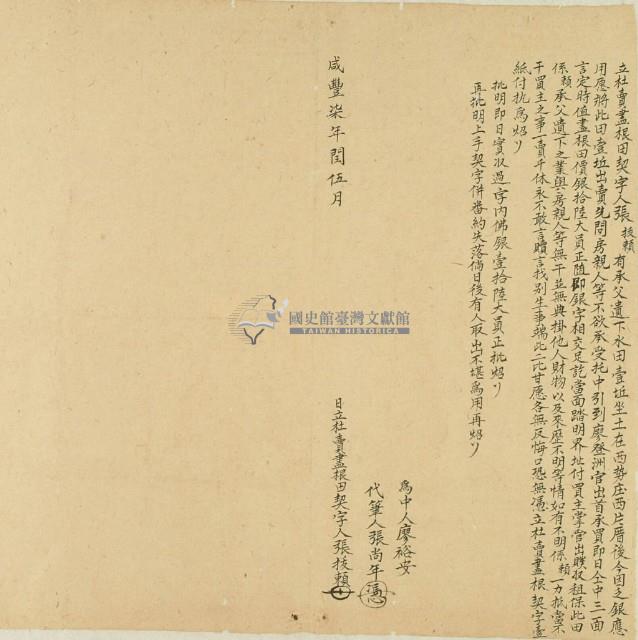 立杜賣盡根田契字人張技賴有承父遺下水田壹坵坐土在西勢庄西片厝後今因乏銀應
用愿將此田壹坵出賣先問房親人等不欲承受托中引到廖登洲官出首承買即日仝中三面
言定時值盡根田價銀拾陸大員正隨即銀字相交足訖當面踏明界址付買主掌管出贌收租保此田
係賴承父遺下之業與房親人等無干並無典掛他人財物以及來歷不明等情如有不明係賴一力抵當不
干買主之事一賣千休永不敢言贖言找別生事端此二比甘愿各無反悔口恐無憑立杜賣盡根契字壹
紙付执為炤
批明即日實收過字內佛銀壹拾陸大員正批炤
再批明上手契字併番約失落倘日後有人取出不堪為用再炤
為中人廖裕安
代筆人張尚年
咸豐柒年閏伍月
日立杜賣盡根田契字人張技賴
國史館臺灣文獻館
TAIWAN HISTORICA